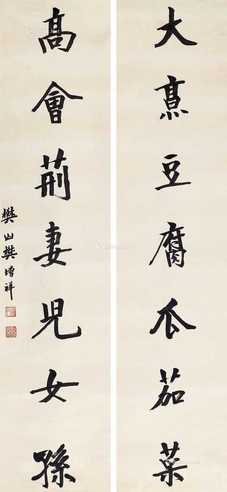 大烹豆腐瓜茄菜
高會荊妻兒女孫
樊山樊增祥